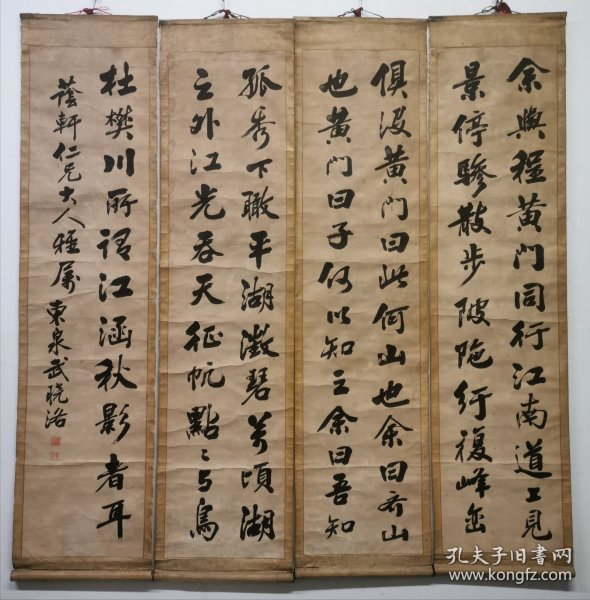 余與程黃門同行江南道上見
景停驂散步陂陁行複峰巒
俱沒黃門曰此何山也余曰齊山
也黃門曰子何以知之余曰吾知
孤秀下瞰平湖澂碧萬頃湖
之外江光吞天征帆點〻与鳥
杜樊川所謂江涵秋影者耳
蔭軒仁兄大人雅屬 東泉武
孔夫子旧书网
www.kongfz.com